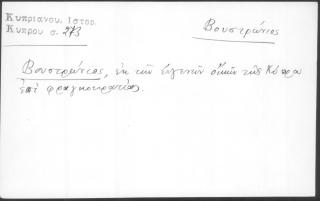 Κυπριανου. Ιστορ.
Κυπρου σ. 273
Βουστρώνιος
Βουστρώνιος, ἐκ τῶν εὐγενῶν οἴκων τῆς Κύπρου
ἐπὶ φραγκοκρατίας.